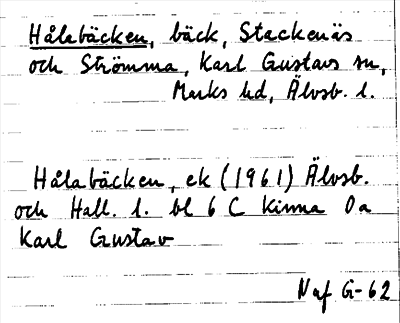 Hålabäcken, bäck, Stackenäs
och Strömma, Karl Gustavs sn,
Marks hd, Älvsb. l.
Hålabäcken, ek (1961) Älvsb.
och Hall. l. bl 6 C Kinna Oa
Karl Gustav
Naf G-62